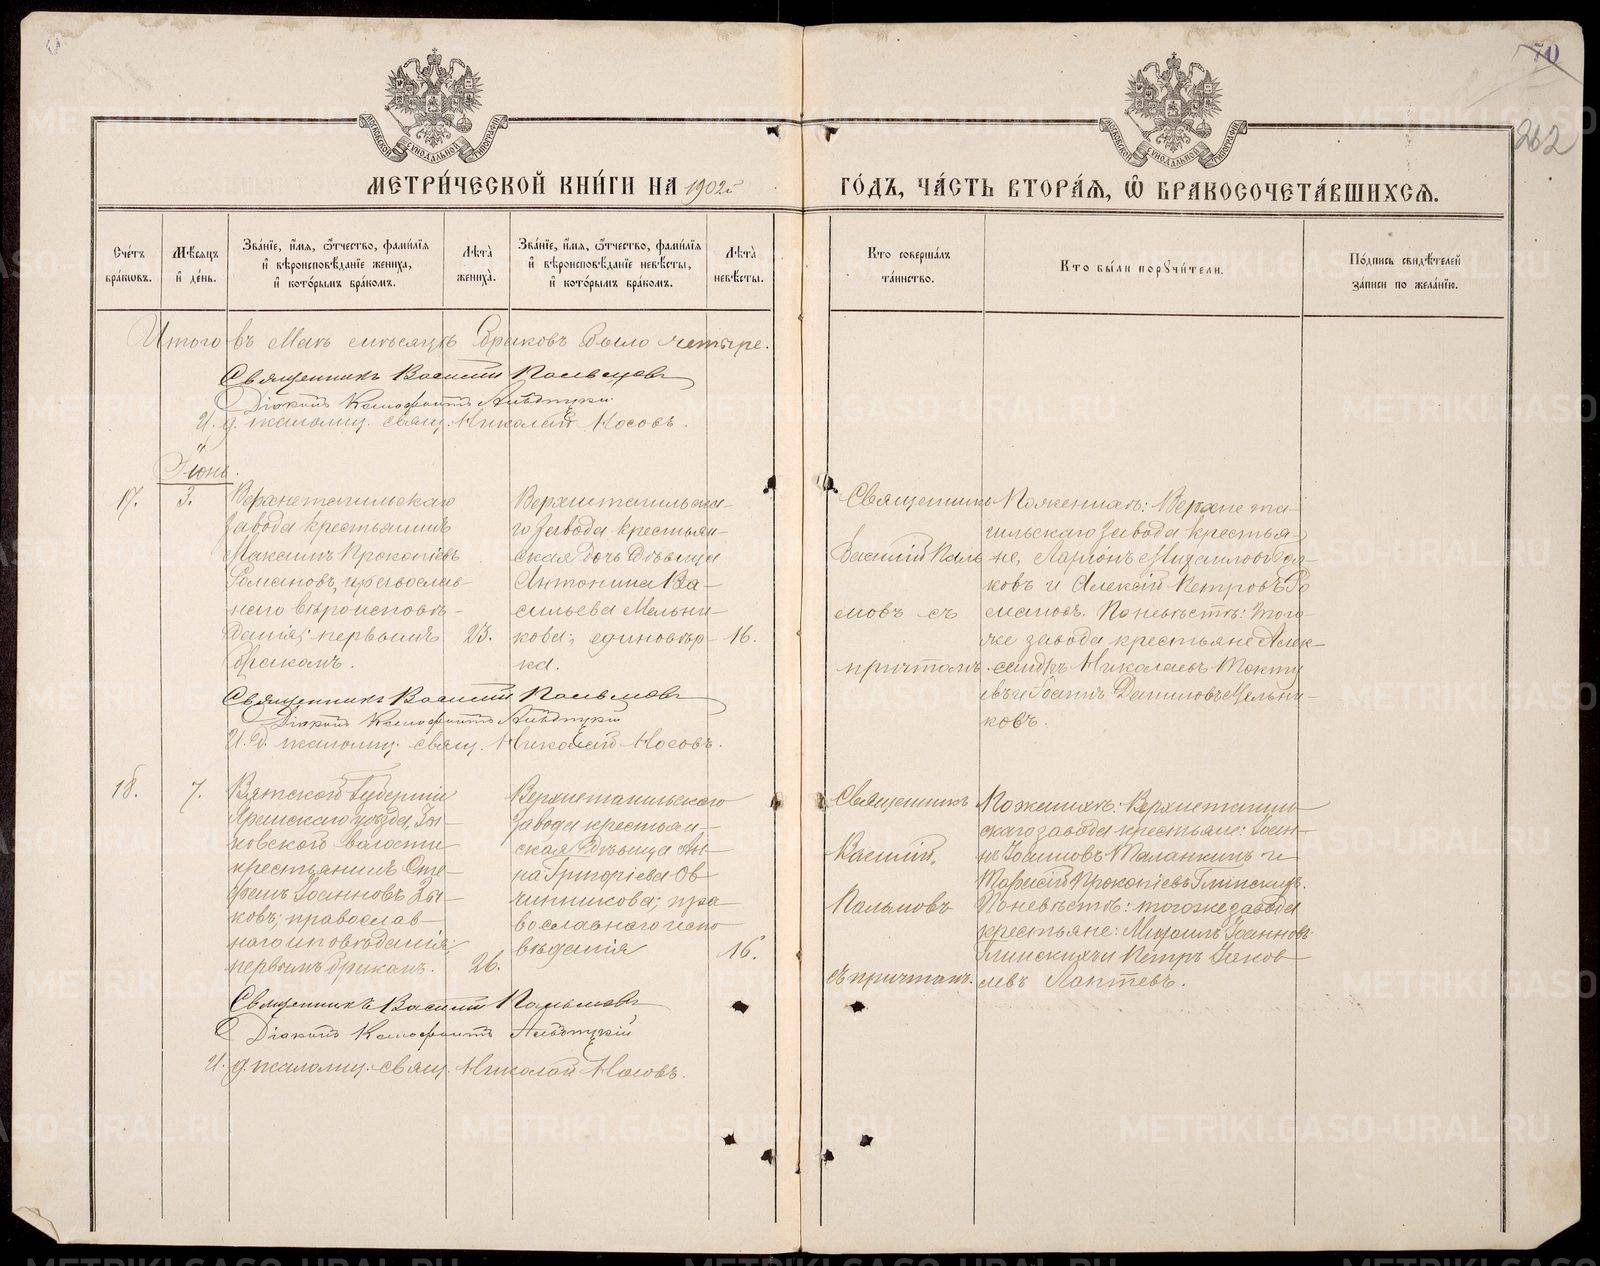 70
262
МОСКОВСКОЙ СУНОДАЛЬНОЙ ТИПОГРАФІИ
МОСКОВСКОЙ СУНОДАЛЬНОЙ ТИПОГРАФІИ
МЕТРИ́ЧЕСКОЙ КНИ́ГИ НА 1902й
ГО́ДЪ, ЧА́СТЬ ВТОРА́Ѧ, Ѽ БРАКОСОЧЕТА́ВШИХСѦ.
Сче́тъ бра́ковъ.
Мѣ́сяцъ и҆ де́нь.
Зва́нїе, и҆́мя, ѻ҆́тчество, фами́лїя и҆ вѣроисповѣ́данїе жениха̀, и҆ кото́рымъ бра́комъ.
Лѣ́та жениха̀.
Зва́нїе, и҆́мя, ѻ҆́тчество, фами́лїя и҆ вѣроисповѣ́данїе невѣ́сты, и҆ кото́рымъ бра́комъ.
Лѣ́та невѣ́сты.
Кто соверша́лъ та́инство.
Кто бы́ли порꙋчи́тели.
По́дпись свидѣ́телей за́писи по жела́нїю.
Итого въ Маѣ мѣсяцѣ браковъ было четыре.
Священникъ Василій Пальмовъ
Діаконъ Ксенофонтъ
И. д. псаломщ. свящ. Николай Носовъ.
Іюнь.
17.
3.
Верхнетагильскаго
завода крестьянинъ
Максимъ Прокопіевъ
Романовъ, православ-
наго вѣроисповѣ-
данія; первымъ
бракомъ.
23.
Верхнетагильска-
го завода крестьян-
ская дочь дѣвица
Антонина Ва-
сильева Мельни-
кова; единовѣр-
ка.
16.
Священникъ
Василій Паль
мовъ съ
причтомъ.
По женихѣ: Верхнета-
гильскаго завода крестья-
не, Ларіонъ Михаиловъ
ковъ и Алексій Петровъ Ро
мановъ. По невѣстѣ: того-
же завода крестьяне Алек-
сандръ Николаевъ
евъ и Іоаннъ Даниловъ Мельни-
ковъ.
Священникъ Василій Пальмовъ
Діаконъ Ксенофонтъ
И. д. псаломщ. свящ. Николай Носовъ.
18.
7.
Вятской губерніи
уѣзда,
волости
крестьянинъ Сте-
фанъ Іоанновъ Зы-
ковъ; православ-
наго исповѣданія,
первымъ бракомъ.
26.
Верхнетагильскаго
завода крестьян-
ская дѣвица Ан-
на Григоріева Ов-
чинникова; пра-
вославнаго испо
вѣданія
16.
Священникъ
Василій
Пальмовъ
съ причтомъ.
По женихѣ: Верхнетагиль-
скаго завода крестьяне: Іоан-
нъ Маланкинъ и
Прокопіевъ Глинскихъ.
По невѣстѣ: того же завода
крестьяне: Михаилъ Іоанновъ
Глинскихъ и Петръ Іаков-
левъ Лаптевъ.
Священникъ Василій Пальмовъ
Діаконъ Ксенофонтъ
И. д. псаломщ. свящ. Николай Носовъ.
METRIKI.GASO-URAL.RU